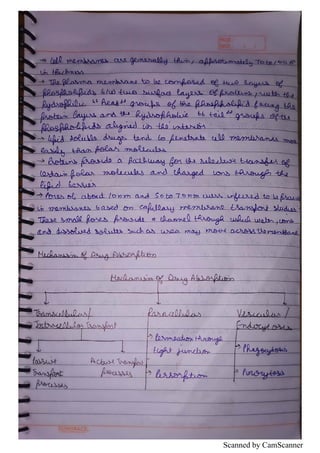 → Cell membranes are generally thin, approximately 70 to 100 A°
in thickness
→ The plasma membrane to be composed of two layers of
phospholipids b/w two surface layers of proteins, with the
hydrophilic "head" groups of the phospholipid facing the
protein layers and the hydrophobic "tail" groups of the
phospholipids aligned in the interior
→ Lipid soluble drugs tend to penetrate cell membranes more
easily than polar molecules
→ Proteins provide a pathway for the selective transfer of
certain polar molecules and charged ions through the
lipid barrier
→ Pores of about 10nm and 50 to 70nm were inferred to be present
in membranes based on capillary membrane transport studies
These small pores provide a channel through which water, ions
and dissolved solutes such as urea may move across membrane
Mechanism of Drug Absorption
Mechanism of Drug Absorption
Transcellular/ Paracellular Vesicular/
Intracellular Transport Endocytosis
→ Permeation through
tight junction → Phagocytosis
Passive Active Transport
Transport processes → Persorption → Pinocytosis
processes
Scanned by CamScanner